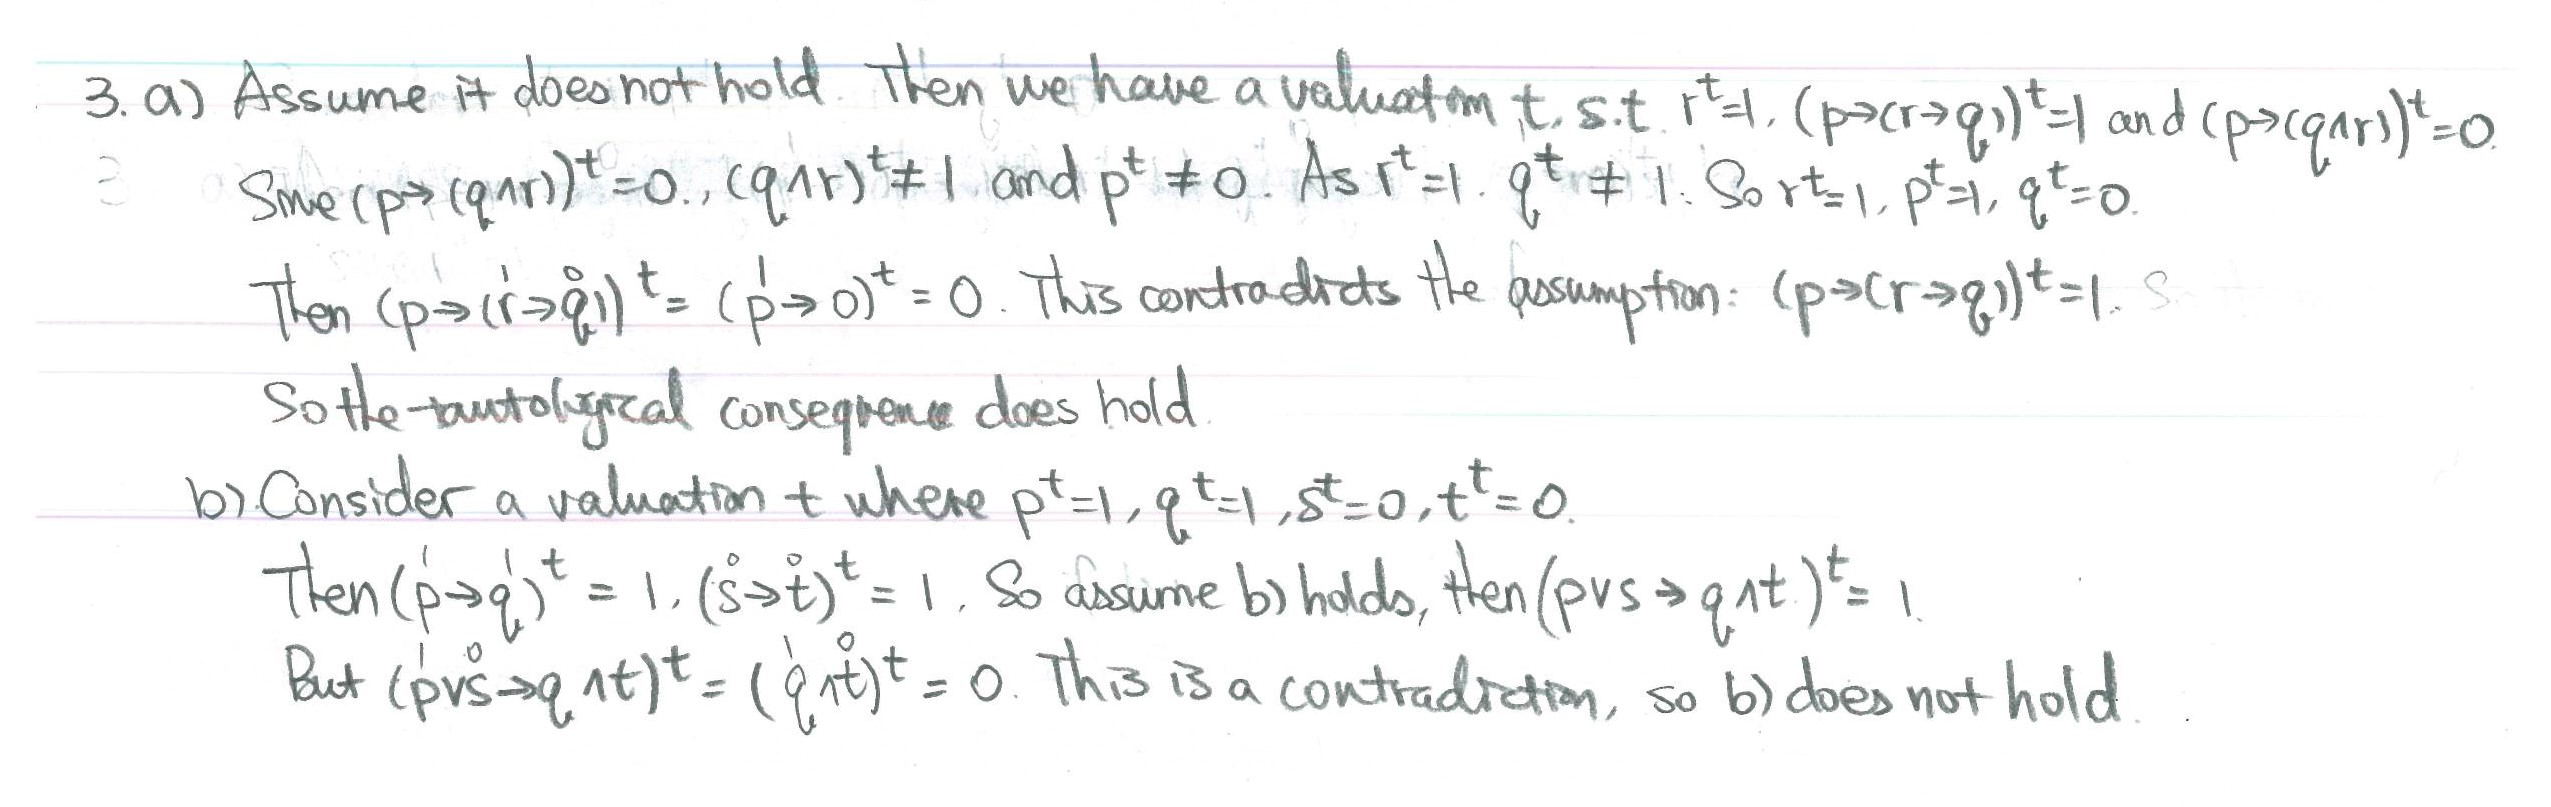 3. a) Assume it does not hold. Then we have a valuation t. s.t. r^t=1, (p→(r→q))^t=1 and (p→(q∧r))^t=0.
Sine (p→(q∧r))^t=0., (q∧r)^t≠1 and p^t≠0. As r^t=1. q^t≠1. So r^t=1, p^t=1, q^t=0.
Then (p→(r→q))^t=(p→0)^t=0. This contradicts the assumption: (p→(r→q))^t=1.
So the tautological consequence does hold.
b). Consider a valuation t where p^t=1, q^t=1, s^t=0, t^t=0.
Then (p→q)^t=1, (s→t)^t=1. So assume b) holds, then (p∨s→q∧t)^t=1.
But (p∨s→q∧t)^t=(q∧t)^t=0. This is a contradiction, so b) does not hold.